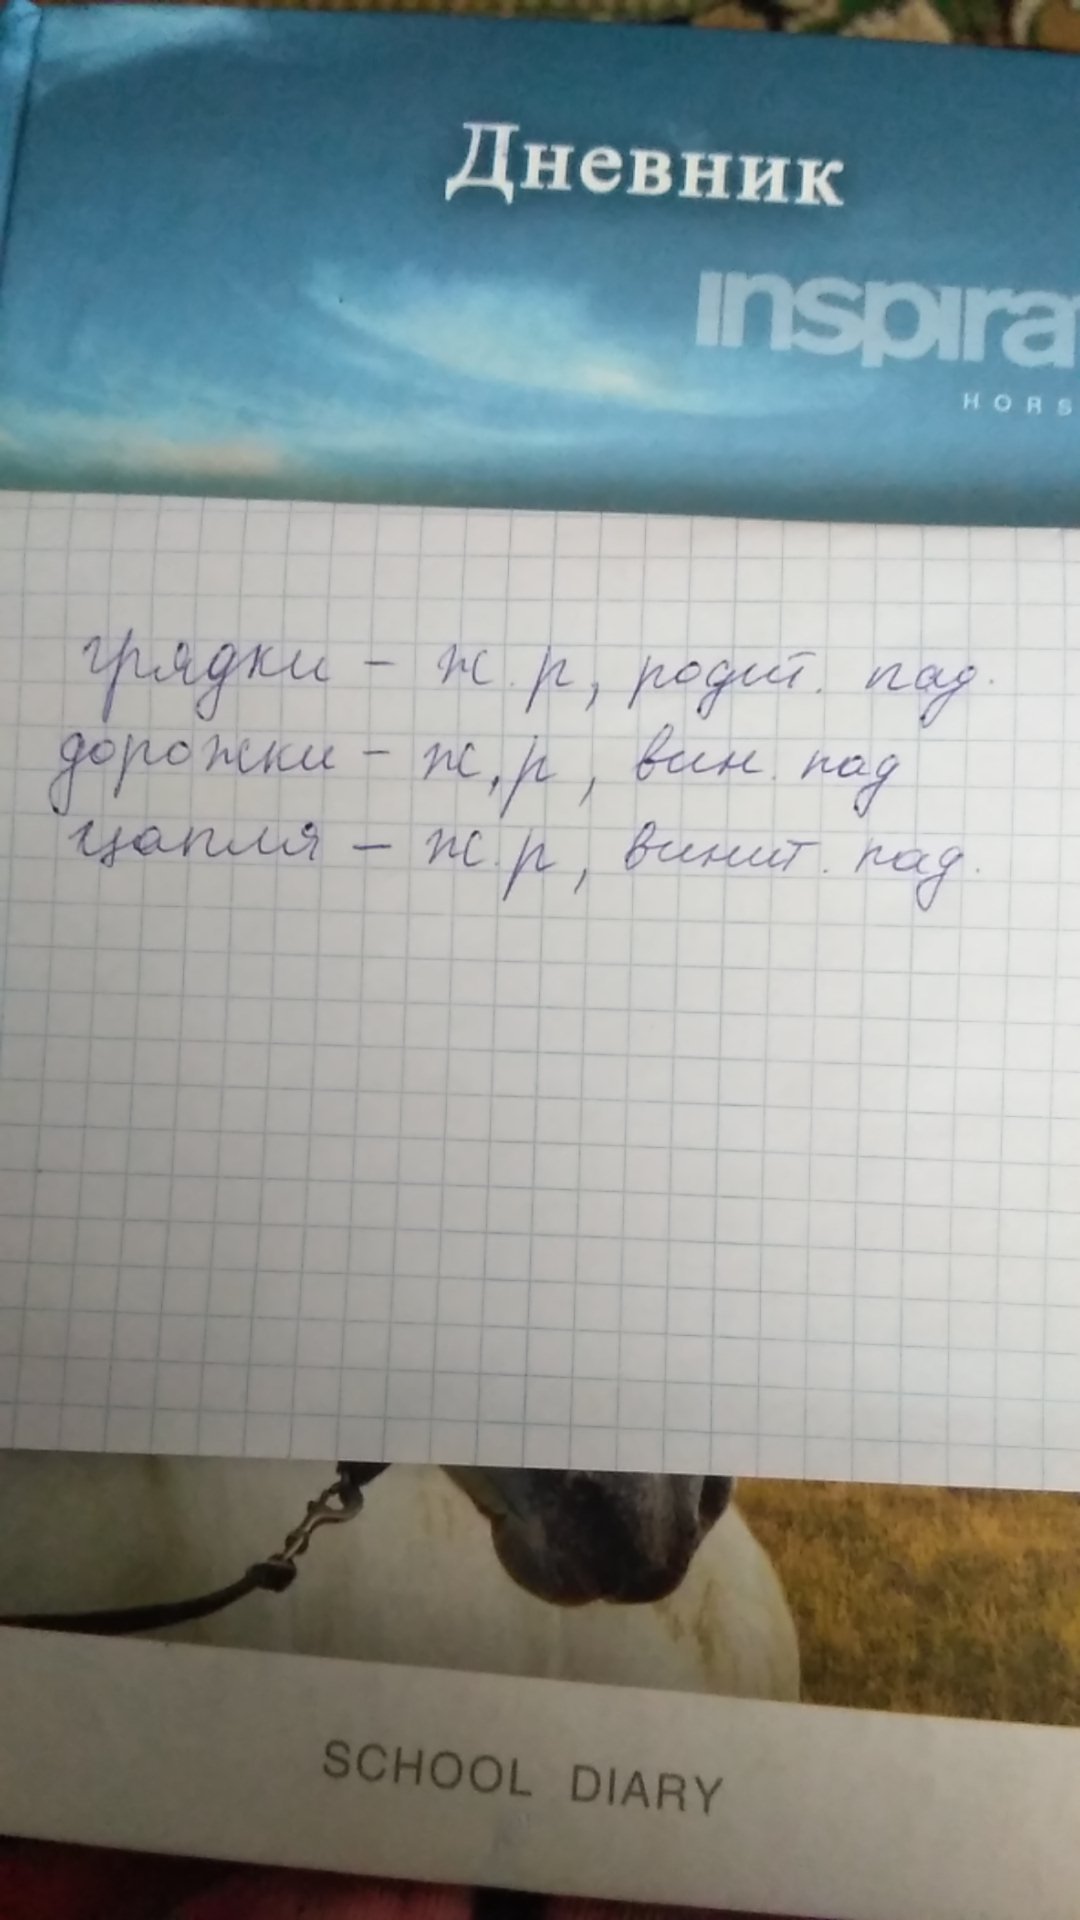 Дневник
inspira
HORS
грядки - ж.р, родит. пад.
дорожки - ж,р, вин. пад
цапля - ж.р, винит. пад.
SCHOOL DIARY